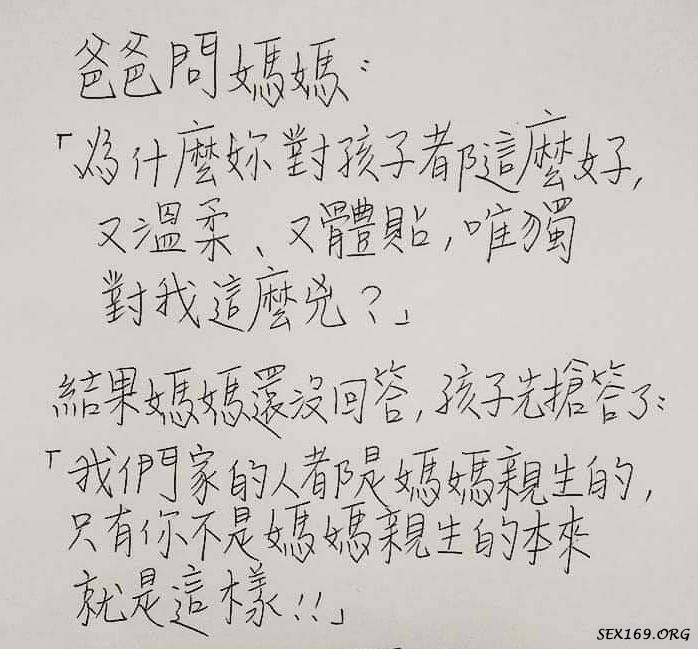 爸爸問媽媽：
「為什麼妳對孩子都這麼好，
又溫柔、又體貼，唯獨
對我這麼兇？」
結果媽媽還沒回答，孩子先搶答了：
「我們家的人都是媽媽親生的，
只有你不是媽媽親生的本來
就是這樣!!」
SEX169.ORG